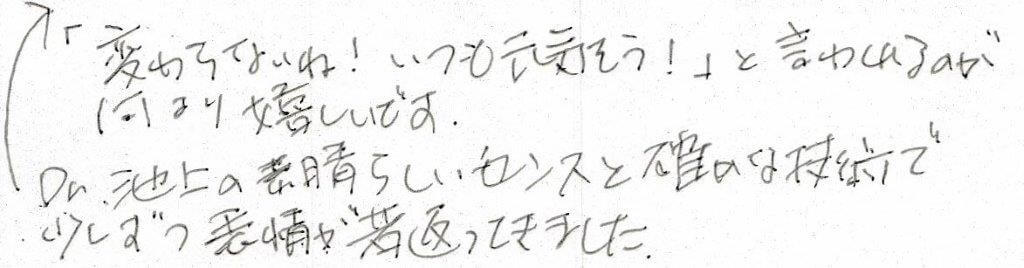 「変わらないね!いつも元気そう!」と言われるのが
何より嬉しいです.
Dr.池上の素晴らしいセンスと確かな技術で
少しずつ表情が若返ってきました.